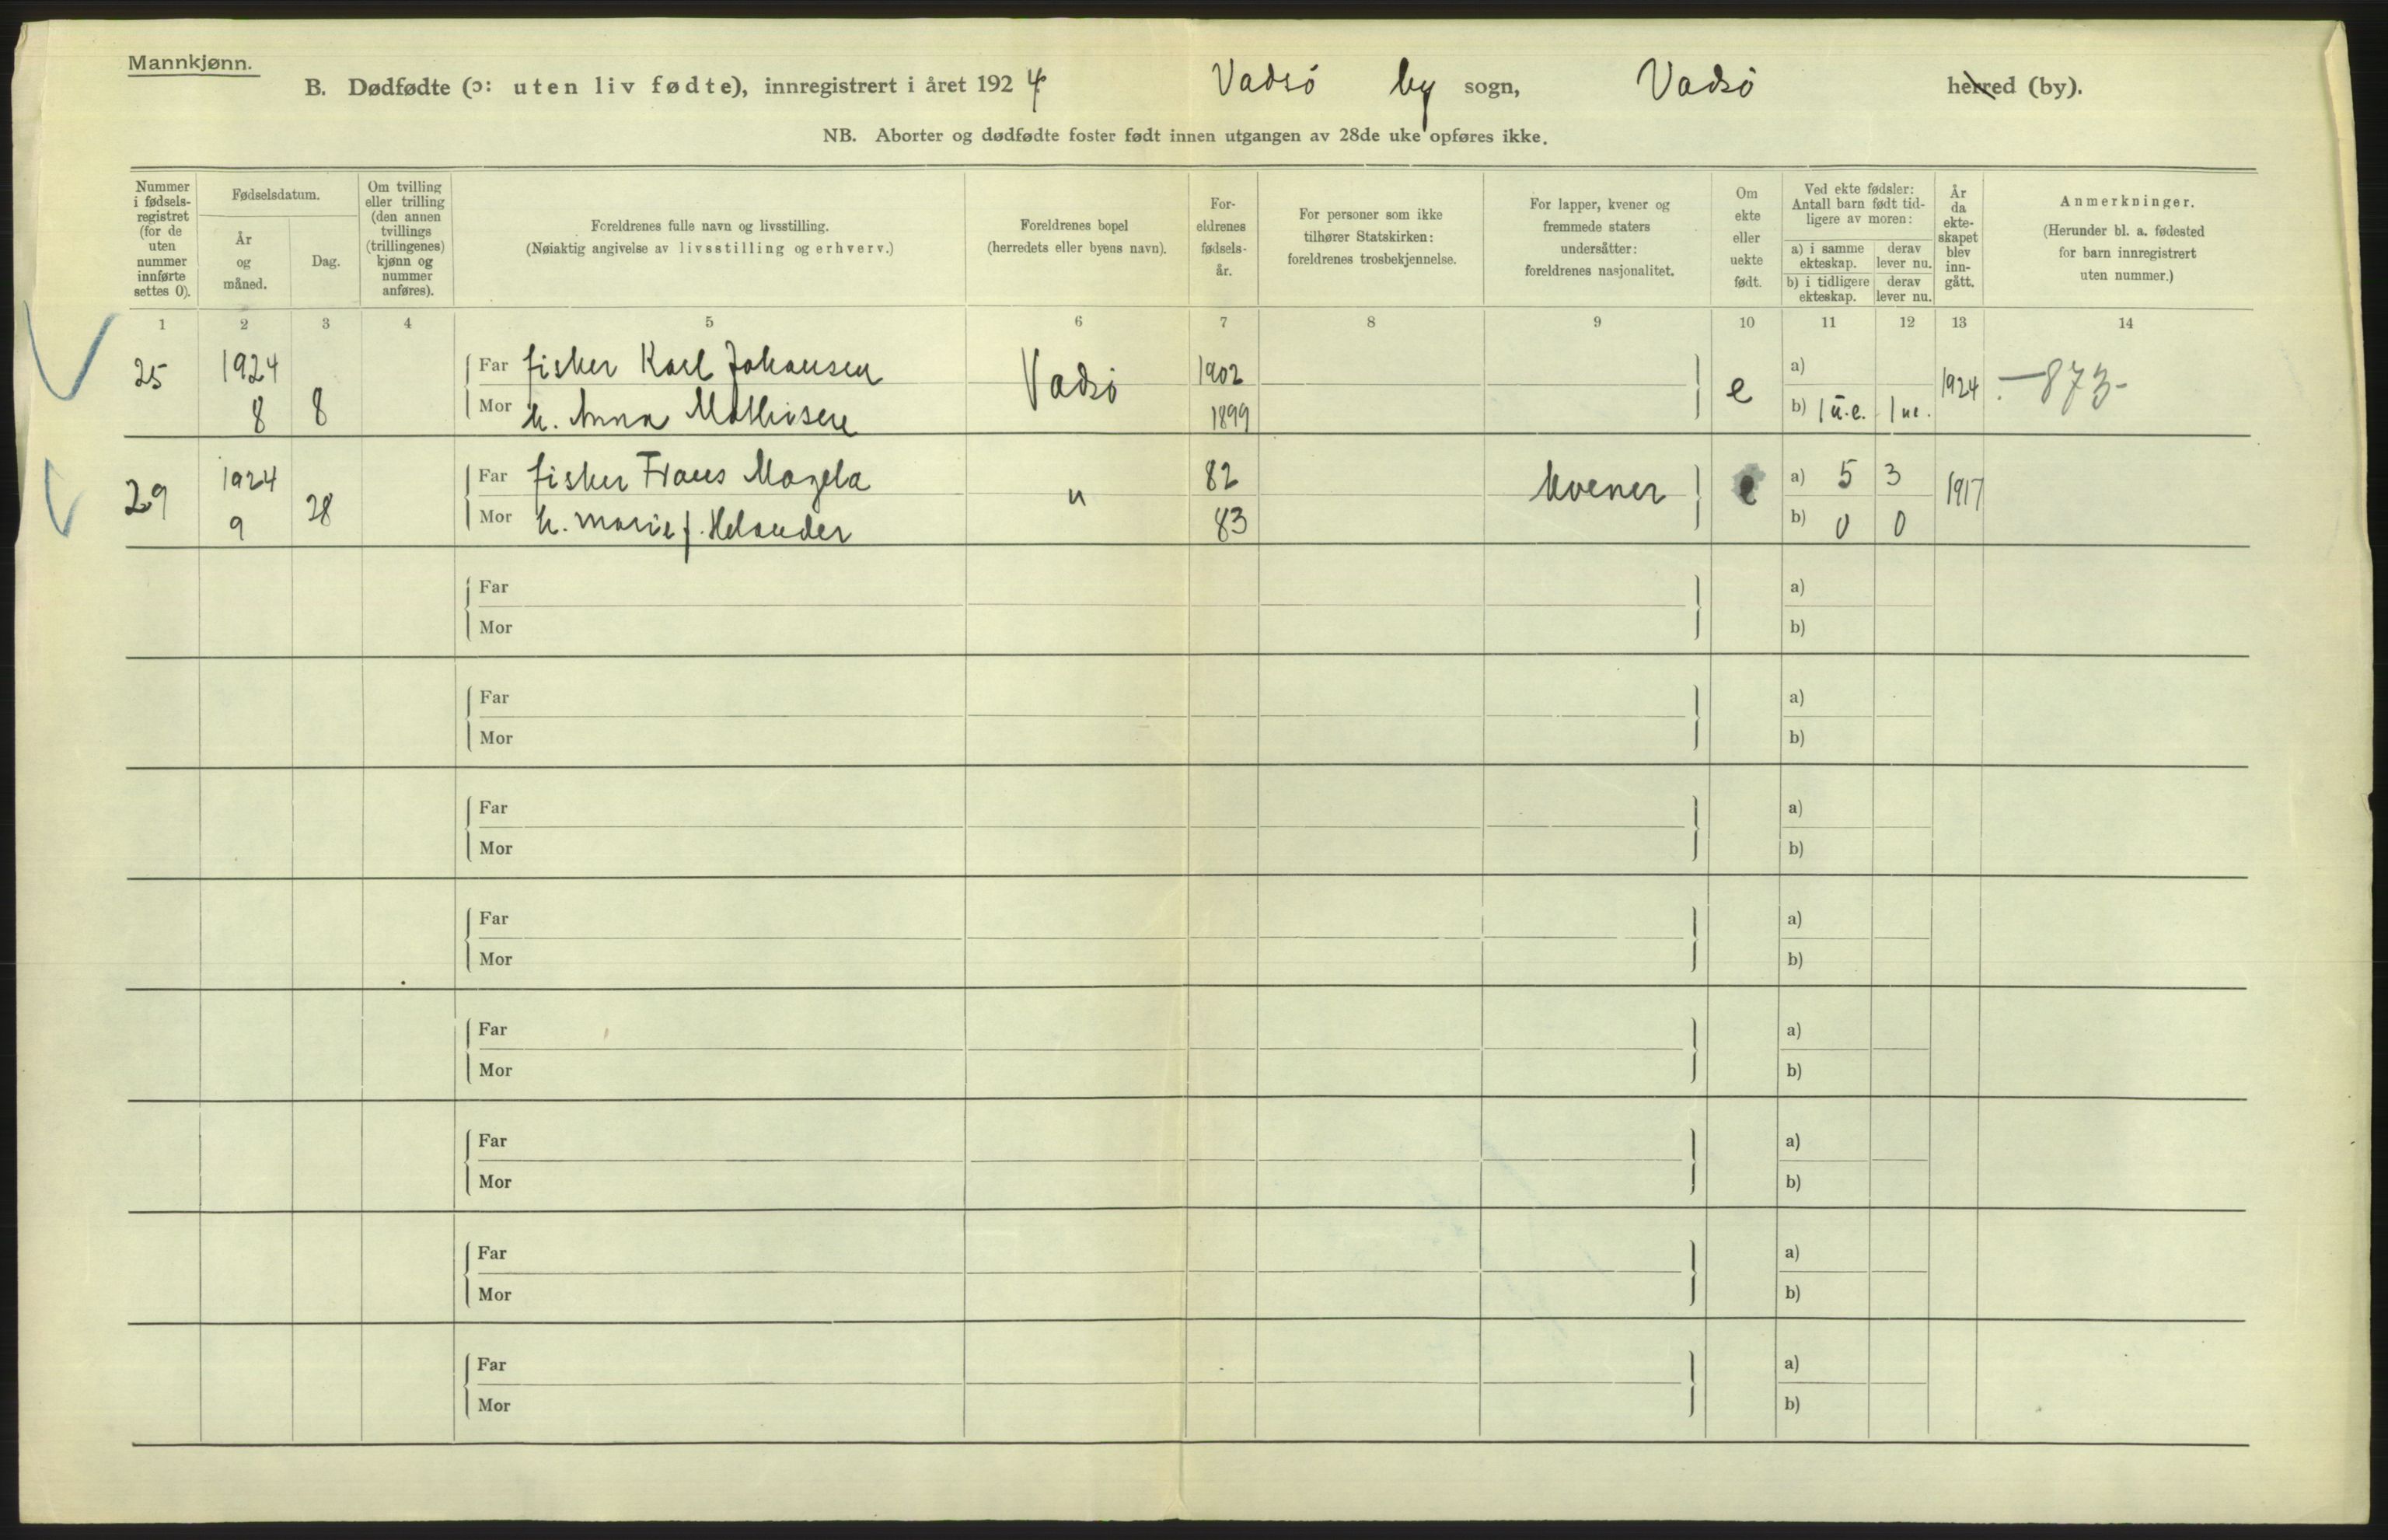 Mannkjønn.
B. Dødfødte (ɔ: uten liv fødte), innregistrert i året 1924 Vadsö by sogn, Vadsö herred (by).
NB. Aborter og dødfødte foster født innen utgangen av 28de uke opføres ikke.
Nummer i fødsels-registret (for de uten nummer innførte settes 0).
Fødselsdatum.
År og måned.
Dag.
Om tvilling eller trilling (den annen tvillings (trillingenes) kjønn og nummer anføres).
Foreldrenes fulle navn og livsstilling.
(Nøiaktig angivelse av livsstilling og erhverv.)
Foreldrenes bopel
(herredets eller byens navn).
For-eldrenes fødsels-år.
For personer som ikke tilhører Statskirken: foreldrenes trosbekjennelse.
For lapper, kvener og fremmede staters undersåtter: foreldrenes nasjonalitet.
Om ekte eller uekte født.
Ved ekte fødsler: Antall barn født tid-ligere av moren:
a) i samme ekteskap. derav lever nu.
b) i tidligere ekteskap. derav lever nu.
År da ekte-skapet blev inn-gått.
Anmerkninger.
(Herunder bl. a. fødested for barn innregistrert uten nummer.)
1 2 3 4 5 6 7 8 9 10 11 12 13 14
25 1924 8 8 Far fisker Karl Johansen Vadsö 1902 e a) 1924 -873-
Mor h. Anna Mathisen 1899 b) 1 u.e. 1 ue.
29 1924 9 28 Far fisker Frans Magela " 82 kvener e a) 5 3 1917
Mor h. Marie f. Helander 83 b) 0 0
Far a)
Mor b)
Far a)
Mor b)
Far a)
Mor b)
Far a)
Mor b)
Far a)
Mor b)
Far a)
Mor b)
Far a)
Mor b)
Far a)
Mor b)